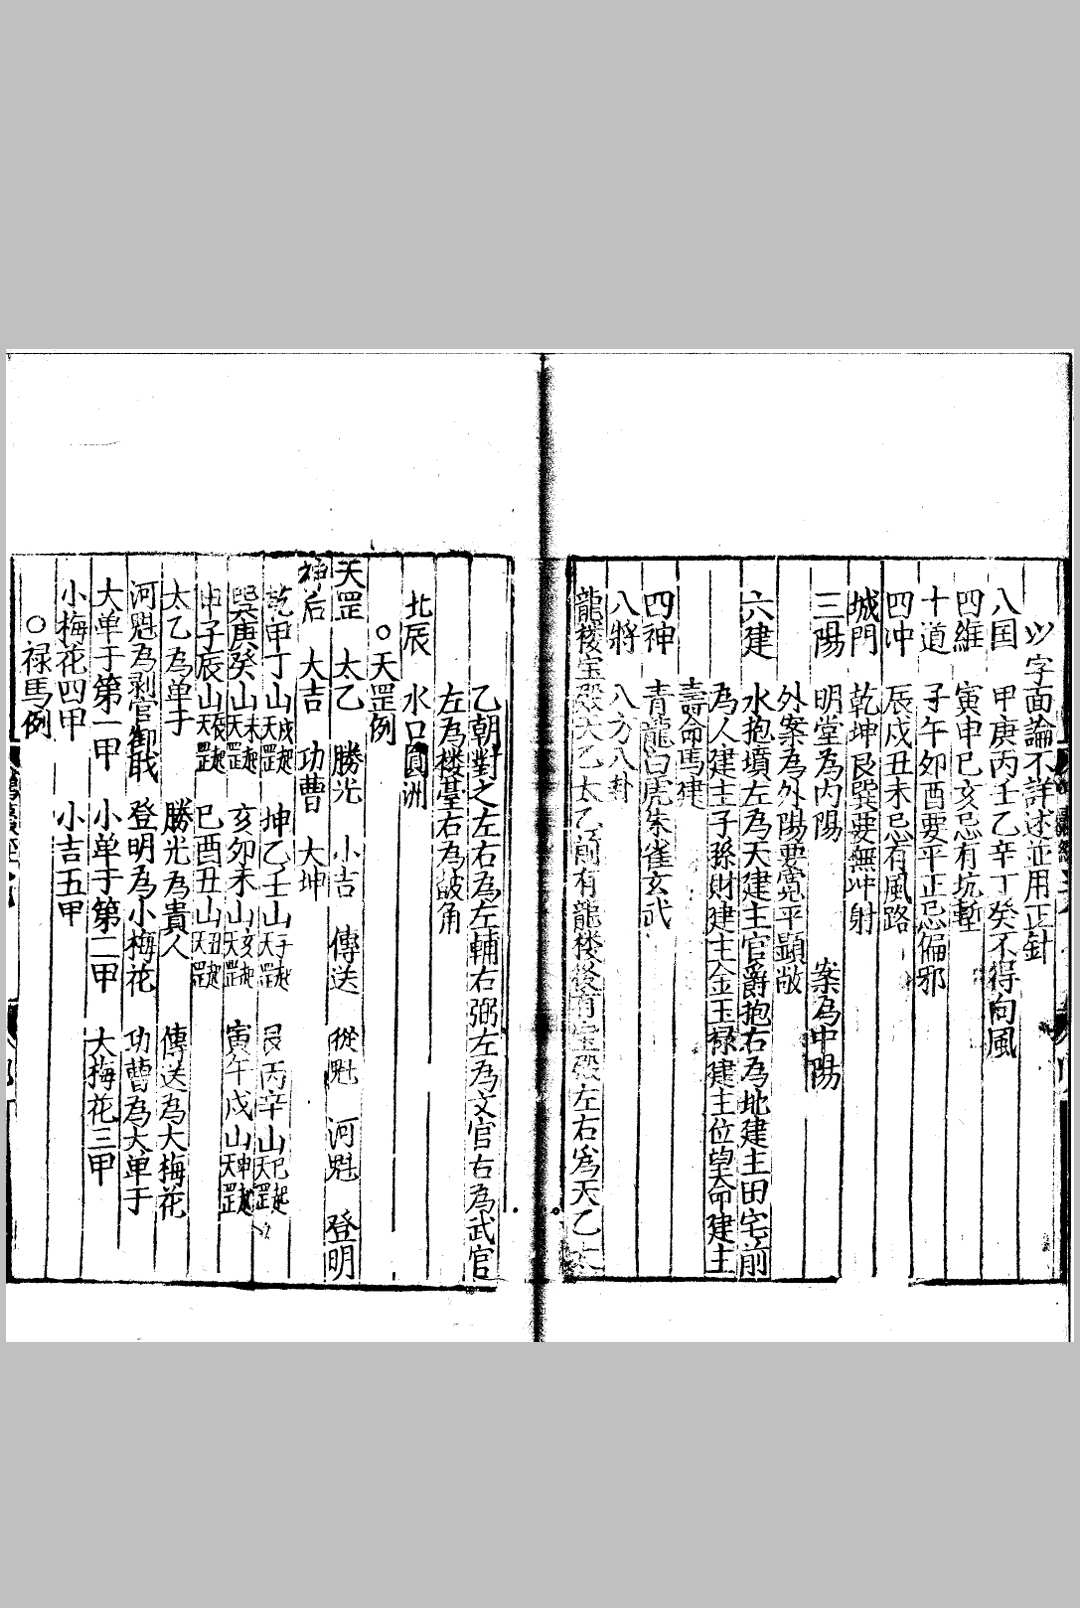 以字面論不詳述並用正針
八国　甲庚丙壬乙辛丁癸不得向風
四維　寅申巳亥忌有坑塹
十道　子午卯酉要平正忌偏邪
四冲　辰戌丑未忌有風路
城門　乾坤艮巽要無冲射
三陽　明堂為内陽　案為中陽
外案為外陽要寬平顯敞
六建　水抱墳左為天建主官爵抱右為地建主田宅前
為人建主子孫財建主金玉祿建主位望命建主
壽命馬建
四神　青龍白虎朱雀玄武
八將　八方八卦
龍楼宝殿天乙太乙前有龍楼後有宝殿左右為天乙太
乙朝對之左右為左輔右弼左為文官右為武官
左為楼臺右為皷角
北辰　水口圓洲
○天罡例
天罡　太乙　勝光　小吉　傳送　從魁　河魁　登明
神后　大吉　功曹　大坤
乾甲丁山戌起天罡　坤乙壬山子起天罡　艮丙辛山巳起天罡
巽庚癸山未起天罡　亥卯未山亥起天罡　寅午戌山申起天罡
申子辰山辰起天罡　巳酉丑山丑起天罡
太乙為单于　勝光為貴人　傳送為大梅花
河魁為剥官御戝　登明為小梅花　功曹為大单于
大单于第一甲　小单于第二甲　大梅花三甲
小梅花四甲　小吉五甲
○禄馬例